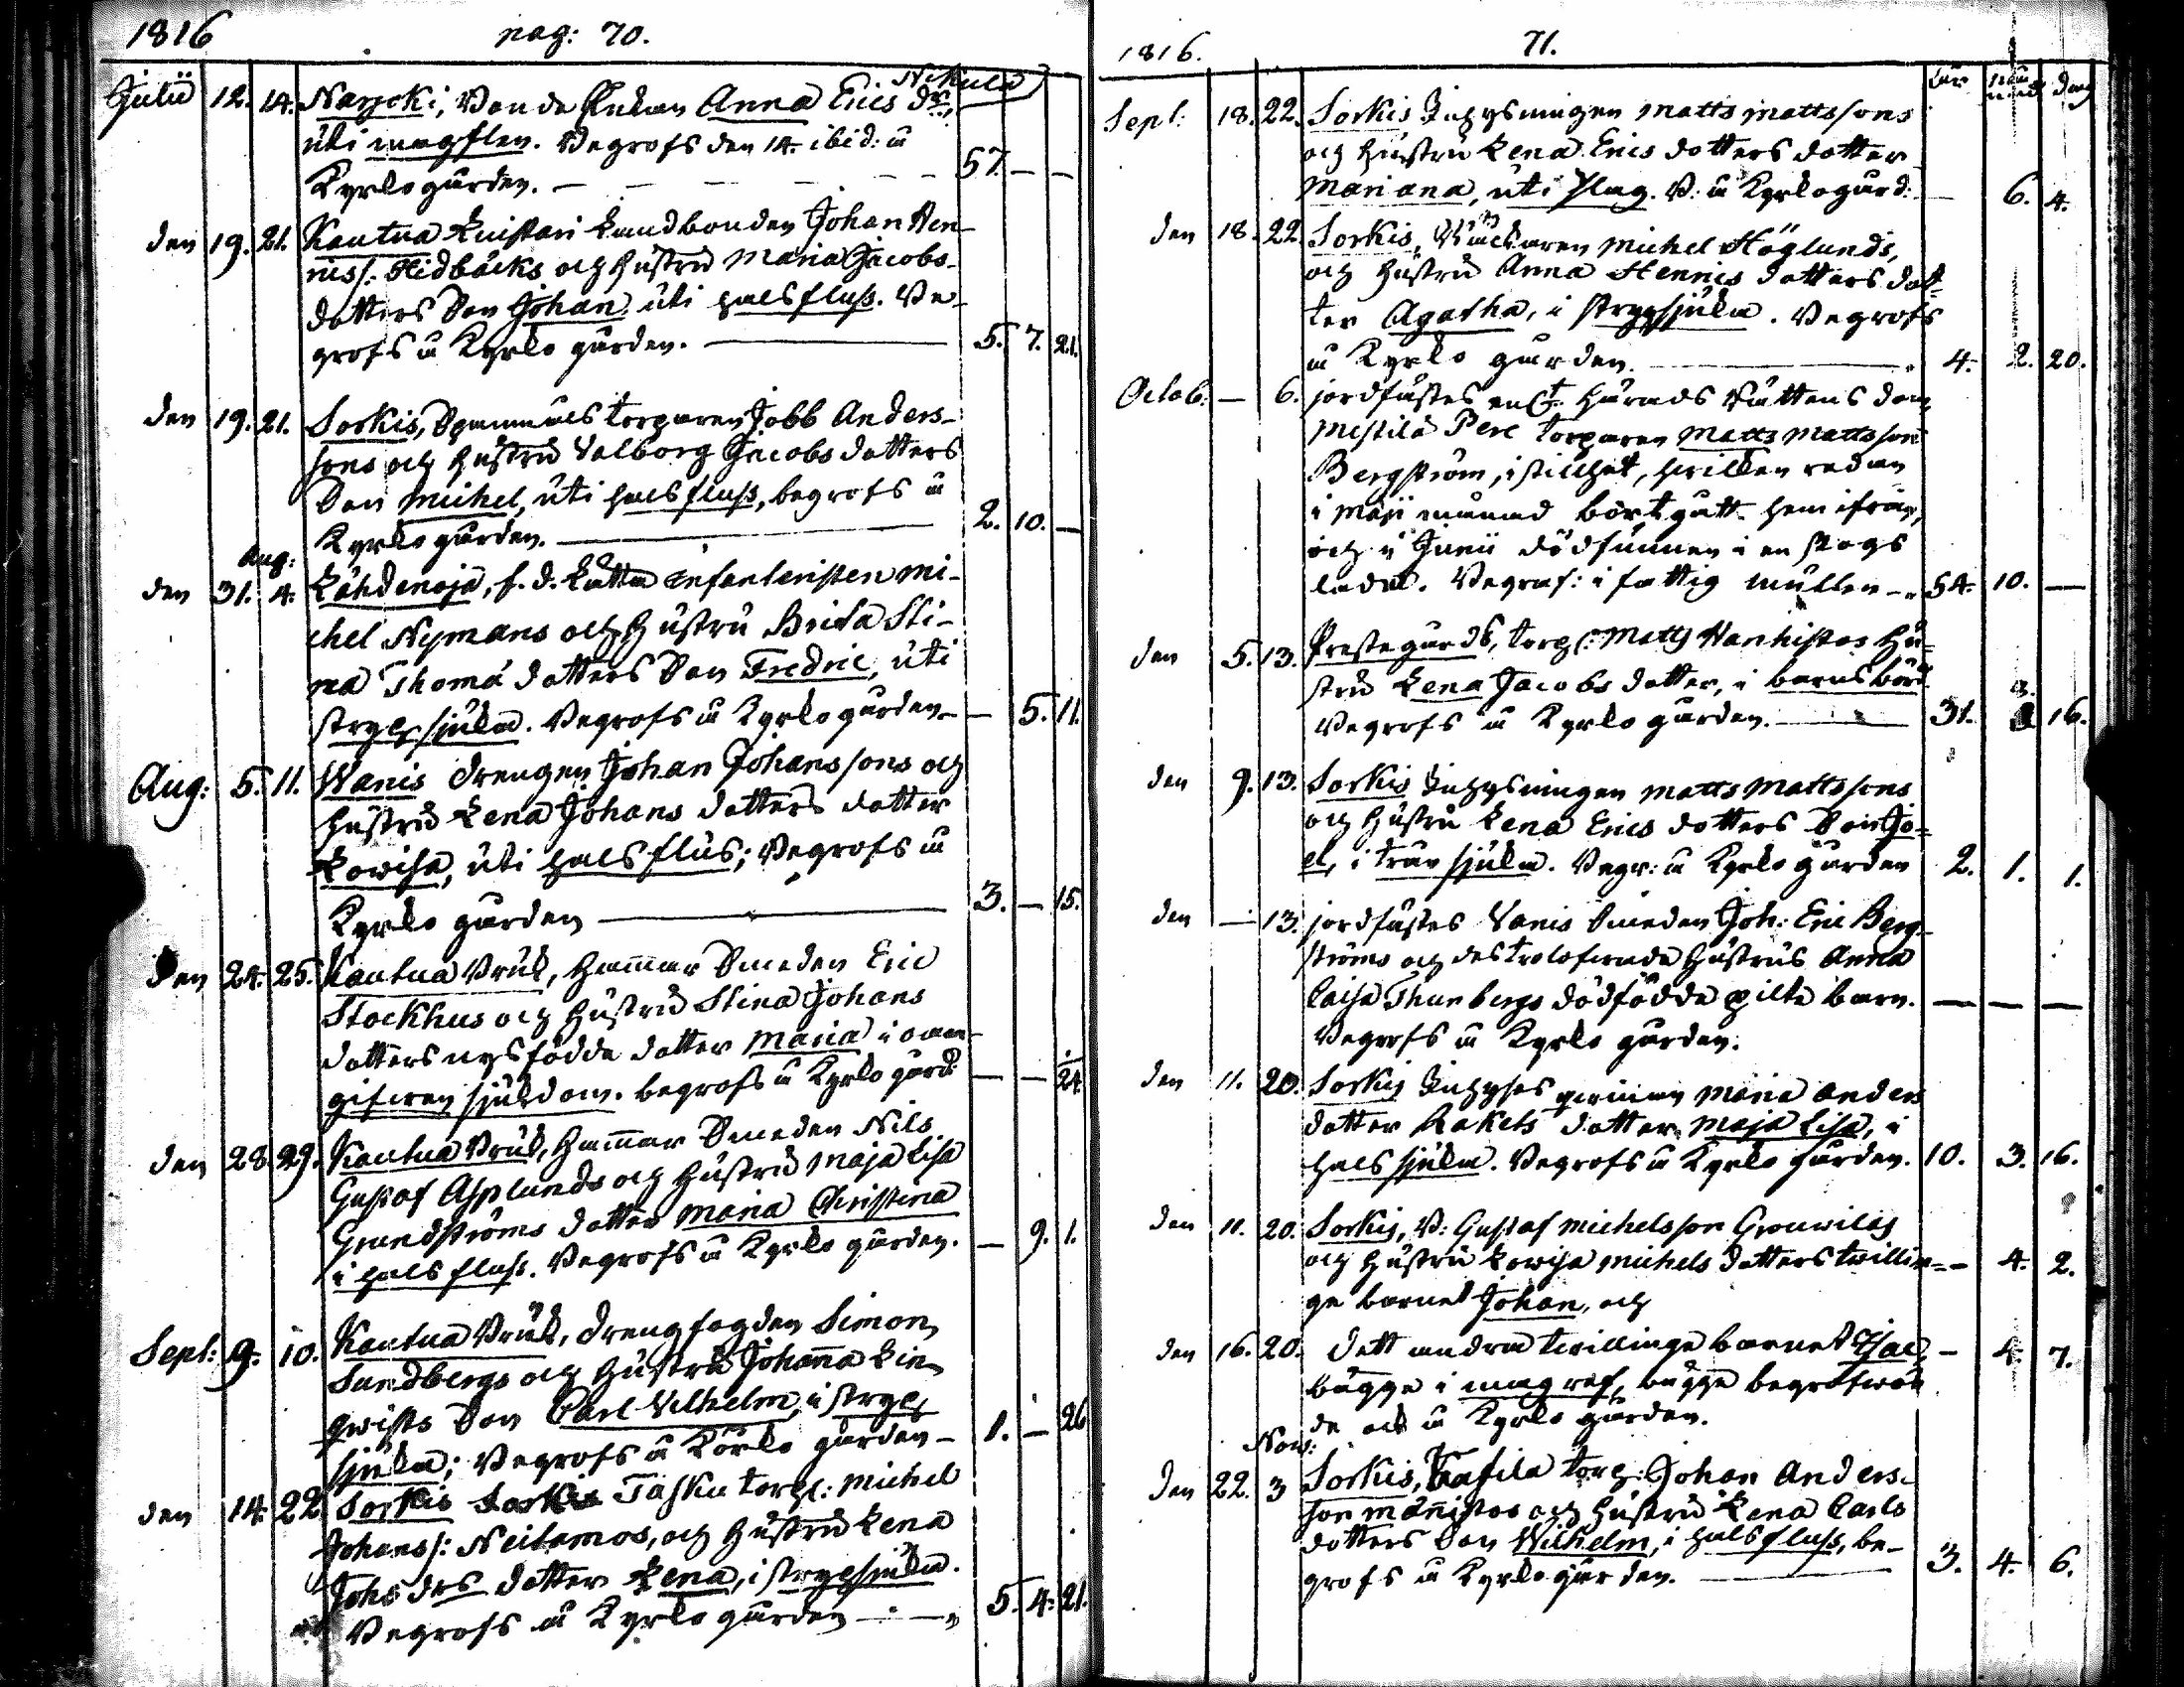 1816 pag: 70.
Nikula
Julii 12. 14. Narjoki, Bonde Enkan Anna Erics dr,
uti magplån. Begrofs den 14. ibid: å
Kyrko gården. — 57. — —
den 19. 21. Kautua Knistari Landbonden Johan Hen-
riss: Hidbäcks och Hustru Maria Jacobs-
dotters Son Johan, uti halsfluss. Be-
grofs å Kyrko gården. — 5. 7. 21.
den 19. 21. Sorkis, torparen Jobb Anders-
sons och Hustru Valborg Jacobs dotters
Son Michel, uti halsfluss, begrofs å
Kyrko gården. — 2. 10. —
Aug:
den 31. 4. Lähdenoja, f. d. Lätta Infanteristen Mi-
chel Nymans och Hustru Brita Sti-
na Thomæ dotters Son Fredric, uti
stryp sjuka. Begrofs å Kyrko gården — — 5. 11.
Aug: 5. 11. Wanis drengen Johan Johanssons och
Hustru Lena Johans dotters dotter
Lowisa, uti halsflus; Begrofs å
Kyrko gården — 3. — 15.
den 24. 25. Kautua Bruk, Hammar Smeden Eric
Stockhus och Hustru Stina Johans
dotters nysfödde dotter Maria i oan-
gifwen sjukdom. begrofs å Kyrko gård: — — 24.
den 28. 29. Kautua Bruk, Hammar Smeden Nils
Gustaf Asplunds och Hustru Maja Lisa
Grundströms dotter Maria Christina
i halsfluss. Begrofs å Kyrko gården. — 9. 1.
Sept: 9. 10. Kautua Bruk, drengfogden Simon
Sundbergs och Hustru Johanna Lin
qwists Son Carl Vilhelm, i stryp
sjuka; Begrofs å Körko gården — 1. — 26
den 14. 22 Sorkis Tasku torp: Michel
Johanss: Neitamos, och Hustru Lena
Johs drs dotter Lena, i strypsjuka.
Begrofs å Kyrko gården — 5. 4. 21.
1816. 71.
åur månad dag
Sept: 18. 22. Sorkis Inhysningen Matts Mattssons
och Hustru Lena Erics dotters dotter
Mariana, uti slag. B: å Kyrkogård: — 6. 4.
den 18. 22. Sorkis, Michel Höglunds,
och Hustru Anna Hennis dotters dot-
ter Agatha, i strypsjuka. Begrofs
å Kyrko gården. — 4. 2. 20.
Octob: — 6. jordfästes enl: Härads Rättens dom,
Mestilä Pere torparen Matts Mattsson
Bergström, i stillhet, hwilken redan
i Maji månad bort gått hem ifrån,
och i Junii död funnen i en skogs
lada. Begraf: i fattig mullen — 54. 10. —
den 5. 13. Prestegårds, torp: Matts Hanhistos Hu-
stru Lena Jacobs dotter, i barnsbörd
Begrofs å Kyrko gården. — 31. 3. 16.
den 9. 13. Sorkis Inhysningen Matts Mattssons
och Hustru Lena Erics dotters Son Jo-
el, i trånsjuka. Begr: å Kyrko gården 2. 1. 1.
den — 13. jordfästes Vanis Smeden Joh: Eric Berg-
ströms och des trolofwade Hustrus Anna
Caisa Thunbergs dödfödde gilte barn. — — —
Begrofs å Kyrko gården.
den 11. 20. Sorkis Inhyses qwinnan Maria Anders
dotter Rakels dotter Maja Lisa, i
halssjuka. Begrofs å Kyrko gården. 10. 3. 16.
den 11. 20. Sorkis, B: Gustaf Michelsson
och Hustru Lowisa Michels dotters twillin- — 4. 2.
ge barnet Johan, och
den 16. 20. dett andra twillinge barnet — 4. 7.
bägge i magref, bägge begrofwo-
de ock å Kyrko gården.
Now:
den 22. 3 Sorkis, torp: Johan Anders-
son Männistos och Hustru Lena Carls
dotters Son Wilhelm, i halsfluss, be-
grofs å Kyrko gården. — 3. 4. 6.